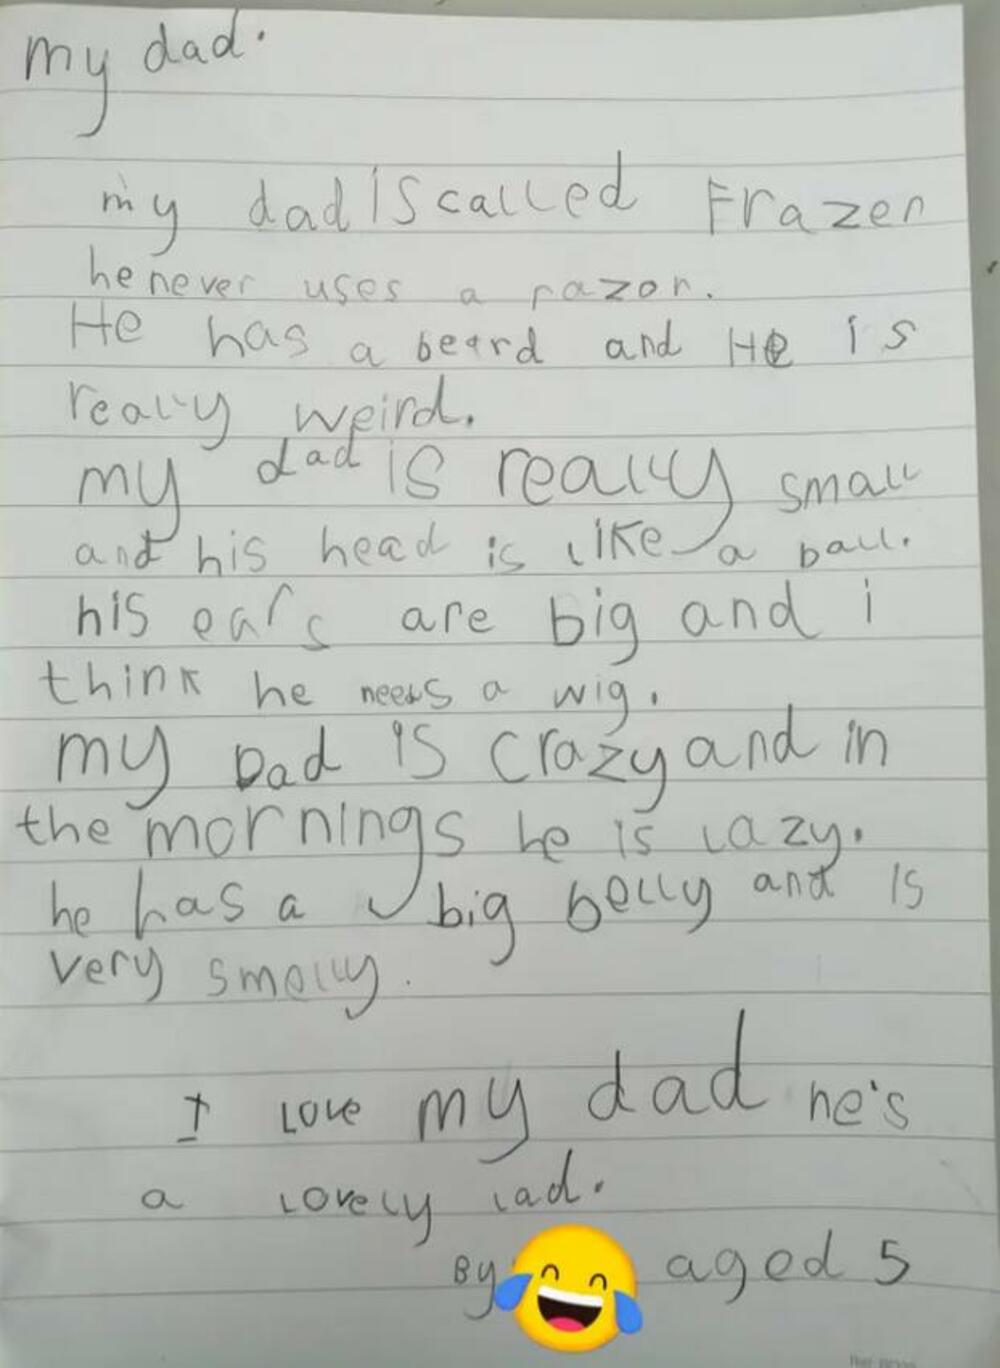 my dad.
my dad is called Frazer
he never uses a razor.
He has a beard and He is
really weird.
my dad is really small
and his head is like a ball.
his ears are big and i
think he needs a wig.
my Dad is crazy and in
the mornings he is lazy.
he has a big belly and is
very smelly.
I Love my dad he's
a lovely lad.
By aged 5